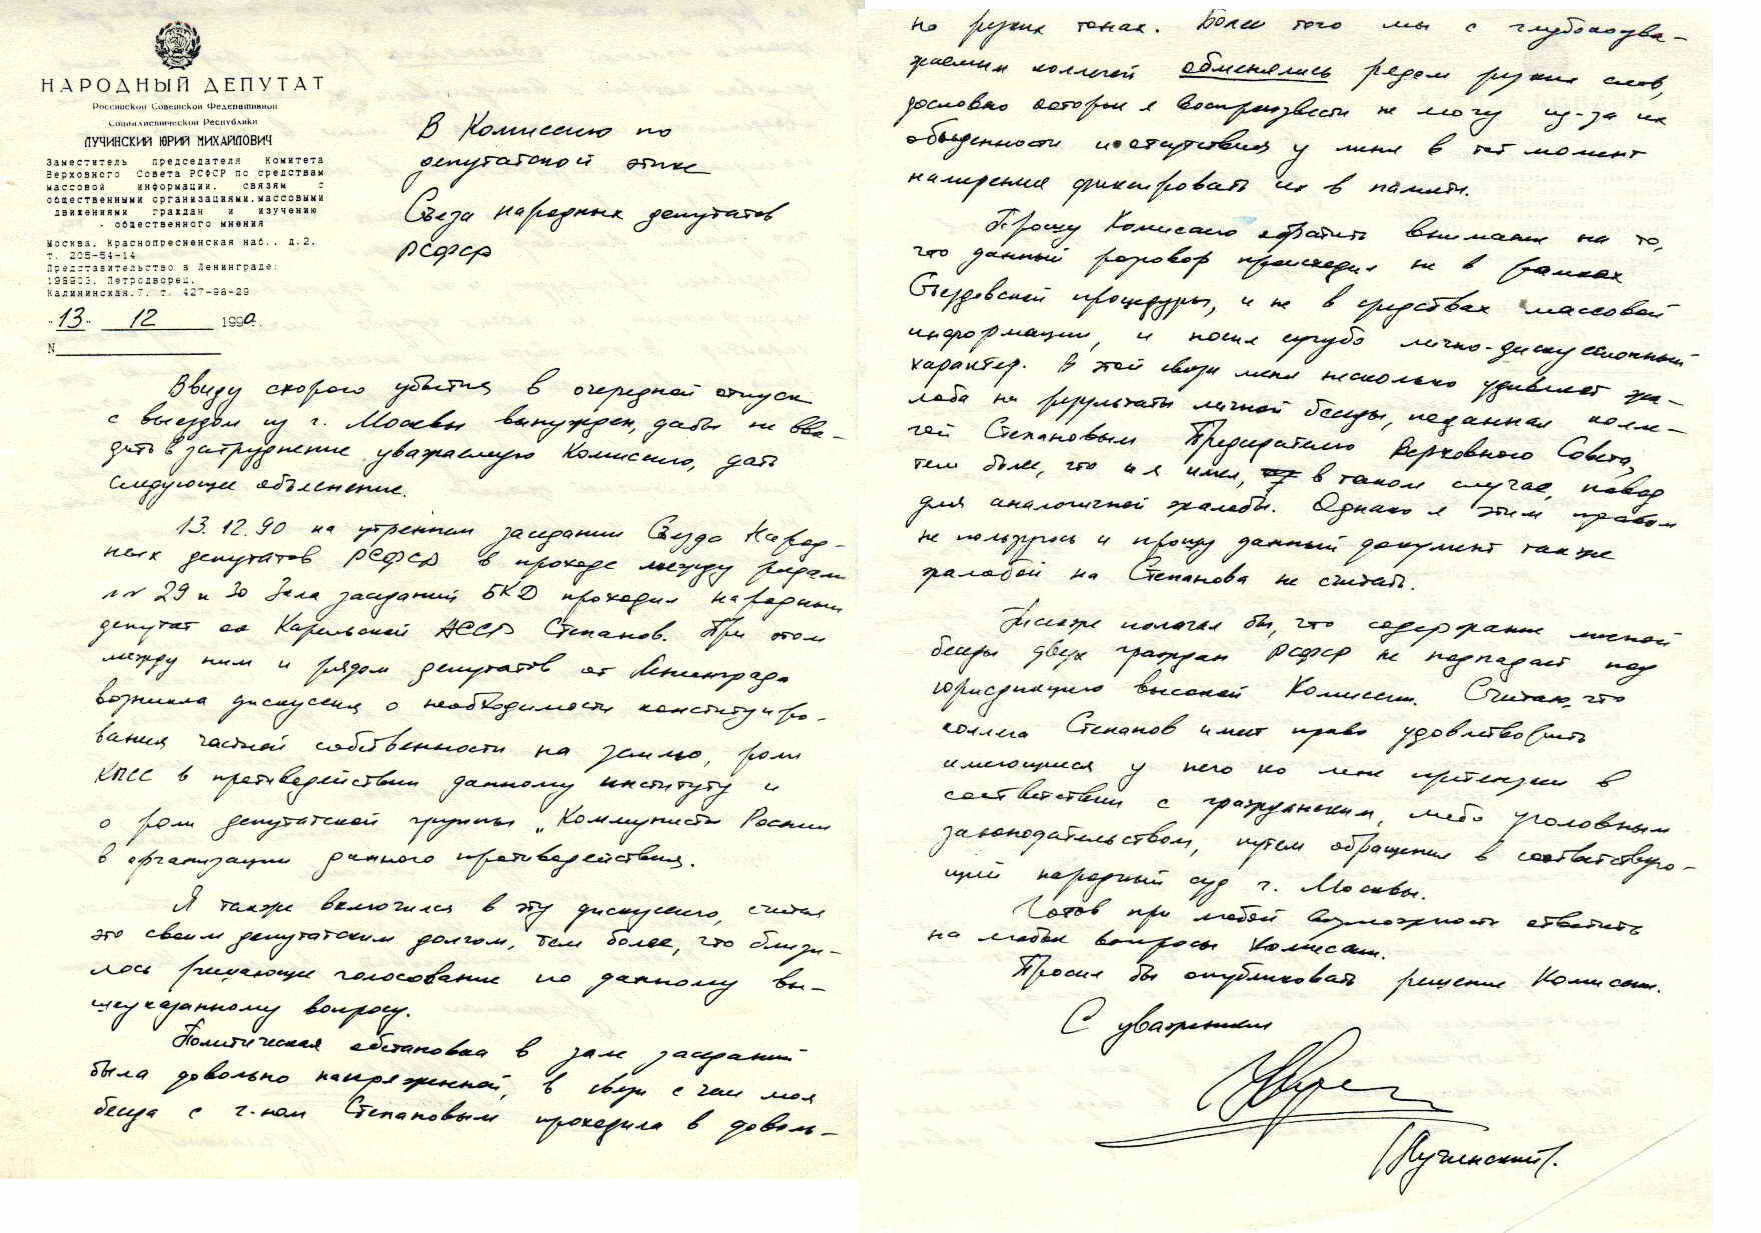 НАРОДНЫЙ ДЕПУТАТ
Российской Советской Федеративной
Социалистической Республики
ЛУЧИНСКИЙ ЮРИЙ МИХАЙЛОВИЧ
Заместитель председателя Комитета
Верховного Совета РСФСР по средствам
массовой информации, связям с
общественными организациями, массовыми
движениями граждан и изучению
общественного мнения
Москва, Краснопресненская наб., д.2.
т. 205-54-14
Представительство в Ленинграде:
199903, Петродворец,
Калининская,7, т. 427-96-29
"13" 12 1990.
N
В Комиссию по
депутатской этике
Съезда народных депутатов
РСФСР
Ввиду скорого убытия в очередной отпуск
с выездом из г. Москвы вынужден, дабы не вво-
дить в затруднение уважаемую Комиссию, дать
следующее объяснение.
13.12.90 на утреннем заседании Съезда Народ-
ных депутатов РСФСР в проходе между рядами
NN 29 и 30 Зала заседаний БКД проходил народный
депутат от Карельской АССР Степанов. При этом
между ним и рядом депутатов от Ленинграда
возникла дискуссия о необходимости конституиро-
вания частной собственности на землю, роли
КПСС в противодействии данному институту и
о роли депутатской группы „Коммунисты России
в организации данного противодействия.
Я также включился в эту дискуссию, считая
это своим депутатским долгом, тем более, что близи-
лось решающее голосование по данному вы-
шеуказанному вопросу.
Политическая обстановка в зале заседаний
была довольно напряженной, в связи с чем моя
беседа с г-ном Степановым проходила в доволь-
но резких тонах. Более того мы с глубокоува-
жаемым коллегой обменялись рядом резких слов,
дословно которые я воспроизвести не могу из-за их
обыденности и отсутствия у меня в тот момент
намерения фиксировать их в памяти.
Прошу Комиссию обратить внимание на то,
что данный разговор происходил не в рамках
Съездовской процедуры, и не в средствах массовой
информации, и носил сугубо лично-дискуссионный
характер. В этой связи меня несколько удивляет жа-
лоба на результаты личной беседы, поданная колле-
гой Степановым Председателю Верховного Совета,
тем более, что и я имел, в таком случае, повод
для аналогичной жалобы. Однако я этим правом
не пользуюсь и прошу данный документ также
жалобой на Степанова не считать.
Я также полагал бы, что содержание личной
беседы двух граждан РСФСР не подпадает под
юрисдикцию высокой Комиссии. Считаю, что
коллега Степанов имеет право удовлетворить
имеющиеся у него ко мне претензии в
соответствии с гражданским, либо уголовным
законодательством, путем обращения в соответствую-
щий народный суд г. Москвы.
Готов при любой возможности ответить
на любые вопросы Комиссии.
Просил бы опубликовать решение Комиссии.
С уважением
/Лучинский/.